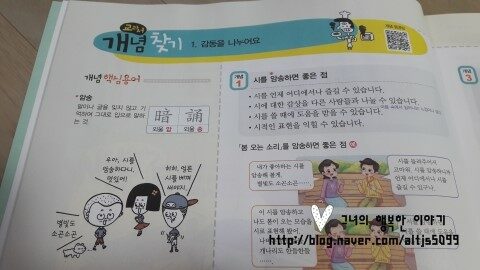 교과서
개념 찾기
1. 감동을 나누어요
개념 핵심용어
* 암송
말이나 글을 잊지 않고 기
억하여 그대로 입으로 말하
는 것
暗 誦
외울 암
외울 송
우아, 시를
암송하다니,
멋있어!
히히, 얼른
시를 바꿔
써야지.
별빛도
소곤소곤
개념
1
시를 암송하면 좋은 점
• 시를 언제 어디에서나 즐길 수 있습니다.
• 시에 대한 감상을 다른 사람들과 나눌 수 있습니다.
• 시를 쓸 때에 도움을 받을 수 있습니다.
• 시적인 표현을 익힐 수 있습니다.
「봄 오는 소리」를 암송하면 좋은 점 예
내가 좋아하는 시를
암송해 볼게.
별빛도 소곤소곤……
시를 들려주어서
고마워. 시를 암송하니까
언제 어디에서나 시를
즐길 수 있구나.
이 시를 암송하고
나도 봄이 오는 모습을
시로 표현해 봤어.
개념
3
그녀의 행복한 이야기
http://blog.naver.com/altjs5099